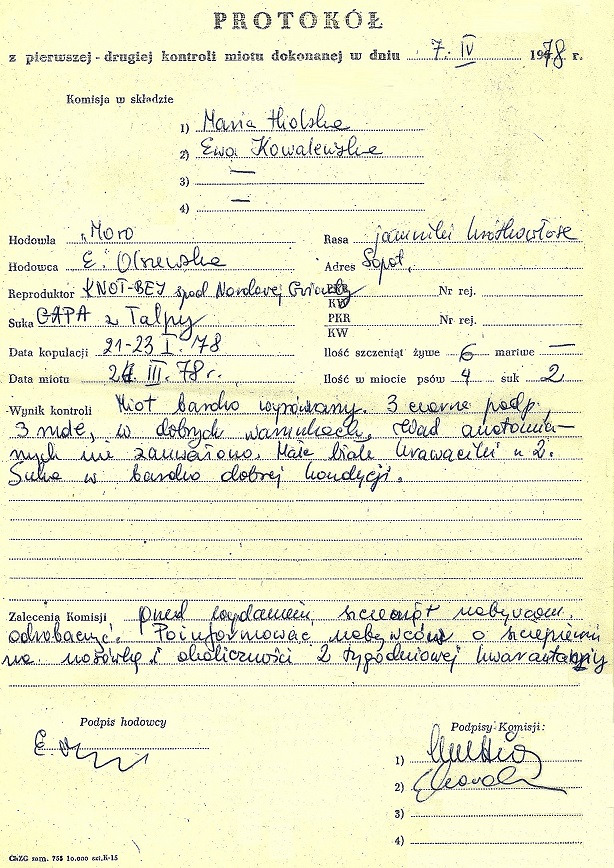 PROTOKÓŁ
z pierwszej - drugiej kontroli miotu dokonanej w dniu 7. IV 1978 r.
Komisja w składzie
1) Maria
2) Ewa Kowalewska
3) —
4) —
Hodowla "Moro
Rasa jamniki krótkowłose
Hodowca E. Olszewska
Adres Sopot,
Reproduktor KNOT-BEY spod Nordowej Gwiazdy
PKR
KW
Nr rej.
Suka GAPA z Talpy
PKR
KW
Nr rej.
Data kopulacji 21-23 I. '78
Ilość szczeniąt żywe 6 martwe —
Data miotu 24 III. 78 r.
Ilość w miocie psów 4 suk 2
Wynik kontroli Miot bardzo wyrównany. 3 czarne podp.
3 rude, w dobrych warunkach, wad anatomicz-
nych nie zauważono. Małe białe krawaciki u 2.
Suka w bardzo dobrej kondycji.
Zalecenia Komisji przed wydaniem szczeniąt nabywcom
odrobaczyć. Poinformować nabywców o szczepieniu
na nosówkę i okoliczności 2 tygodniowej kwarantanny
Podpis hodowcy
Podpisy Komisji:
E.
1)
2)
3)
4)
ChZG zam. 755 10.000 szt. K-15